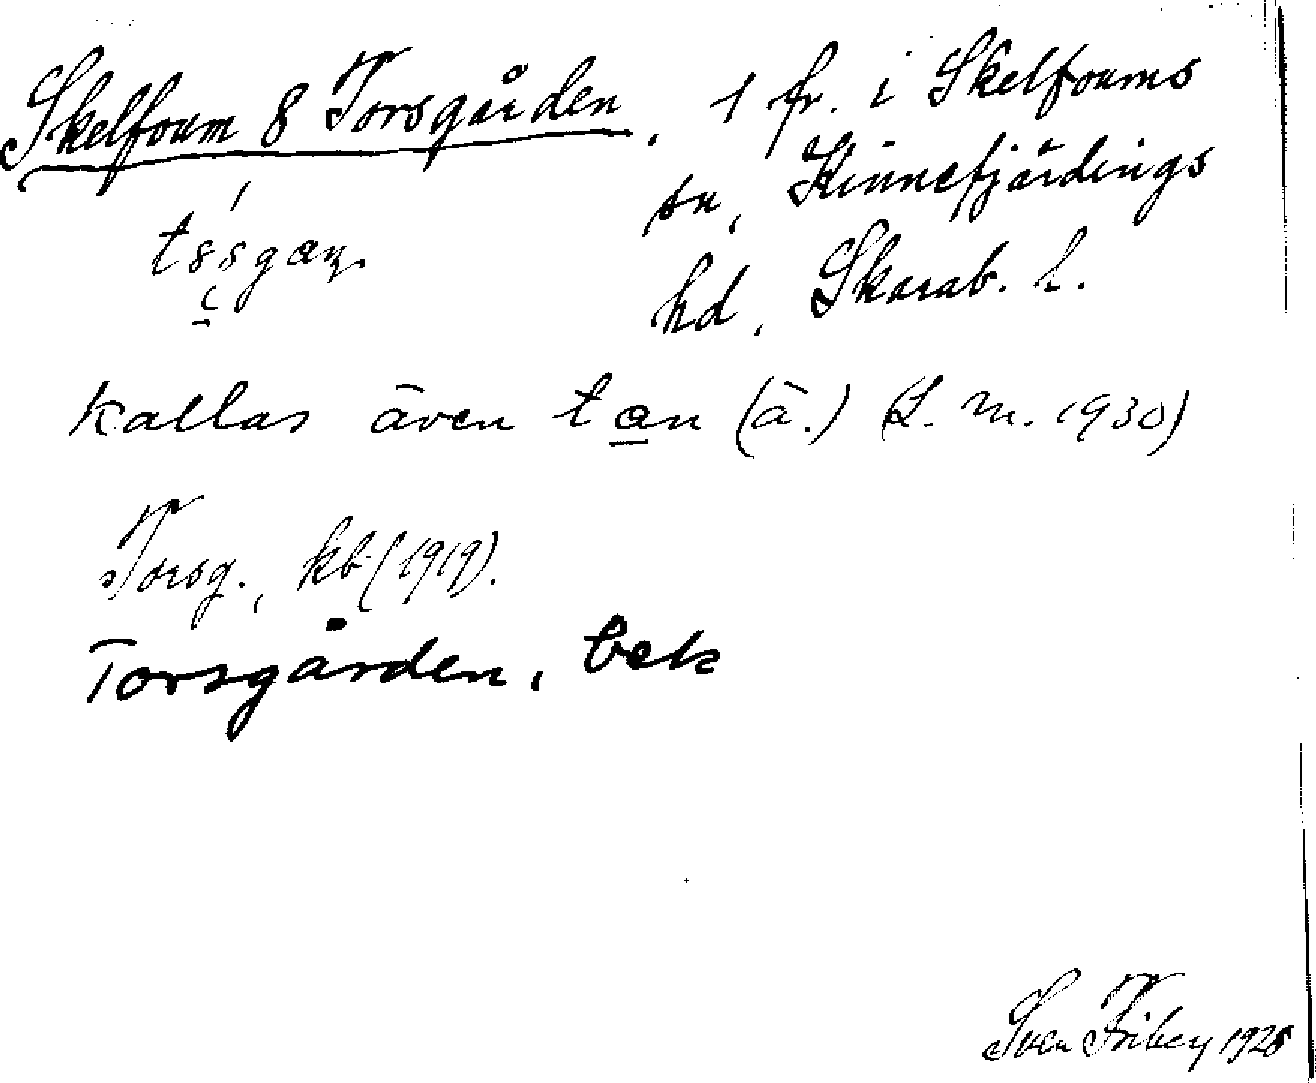 Skelfoum 8 Torsgården, 1 fr. i Skelfoums
sn, Kinnefjärdings
hd, Skarab. l.
kallas även tan (ä.) (L. m. 1930)
Torsg., kb (1919).
Torsgården, bek
Sven Friberg 1925